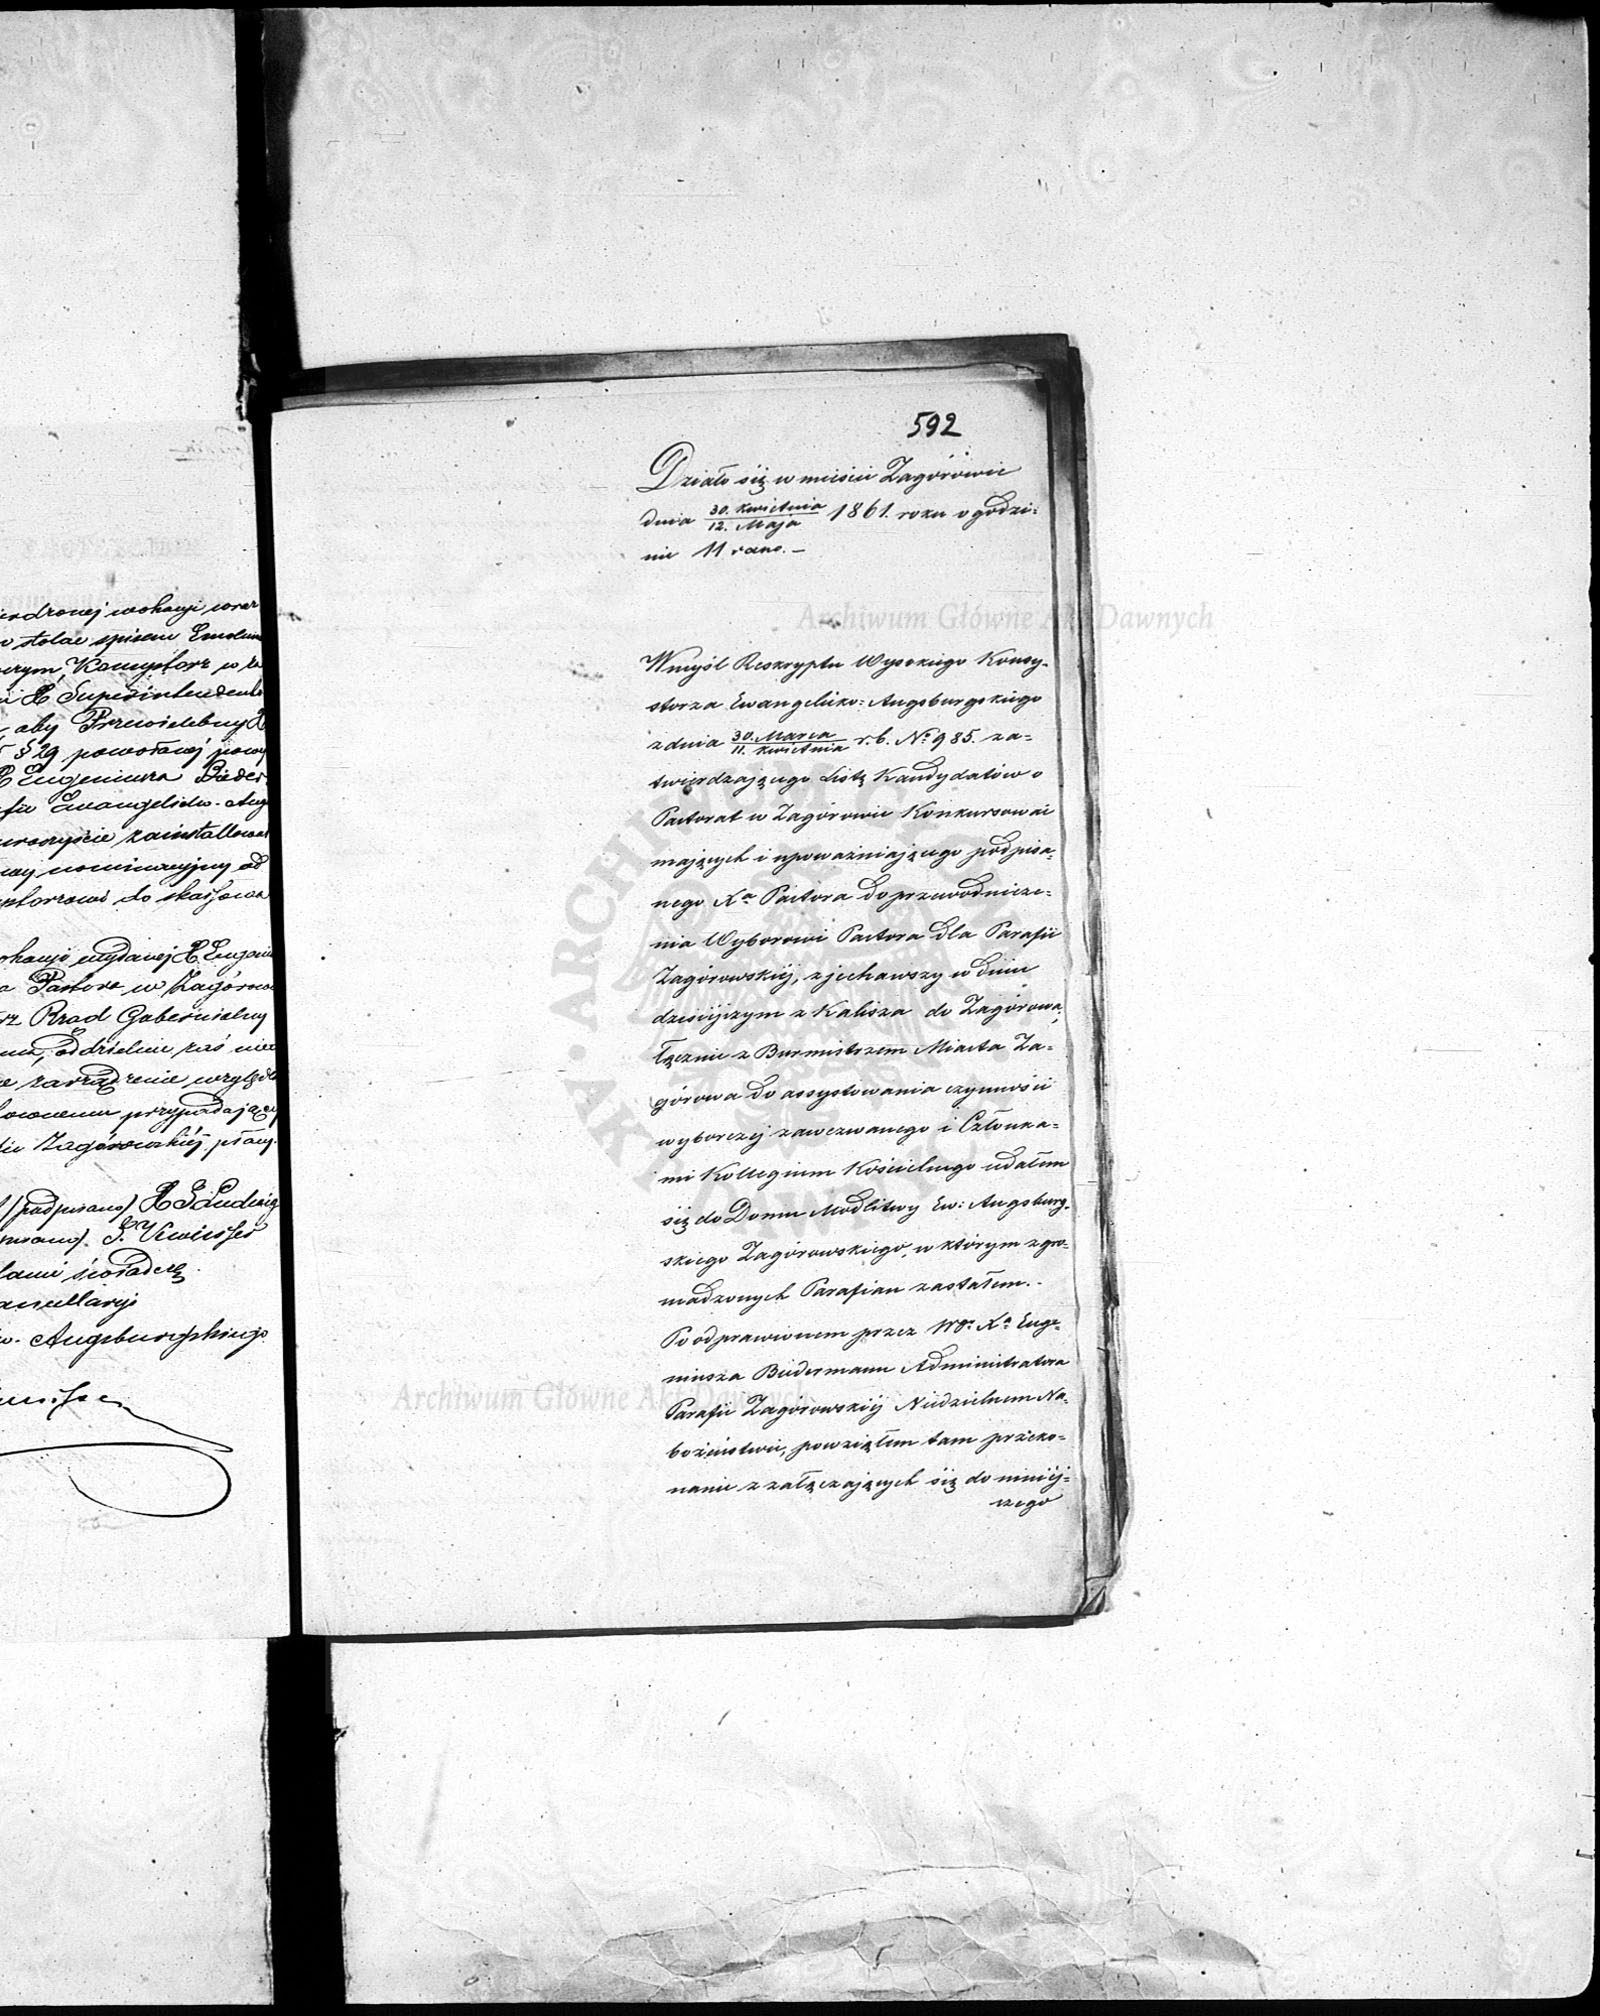 592
Działo się w mieście Zagórowie
dnia 30. Kwietnia / 12. Maja 1861. roku o godzi=
nie 11 rano. –
Wmyśl Reskryptu Wysokiego Konsy-
storza Ewangelicko=Augsburgskiego
z dnia 30. Marca / 11. Kwietnia r. b. No 985. za=
twierdzającego Listę Kandydatów o
Pastorat w Zagórowie Konkursować
mających i upoważniającego podpisa=
nego Xa Pastora do przewodnicze=
nia Wyborowi Pastora dla Parafii
Zagórowskiéj, zjechawszy w dniu
dzisiéjszym z Kalisza do Zagórowa,
łącznie z Burmistrzem Miasta Za=
górowa do assystowania czynności
wyborczéj zawezwanego i Członka=
mi Kollegium Kościelnego udałem
się do Domu Modlitwy Ew: Augsburg-
skiego Zagórowskiego, w którym zgro-
madzonych Parafian zastałem.-
Po odprawionem przez Wo Xa Euge-
niusza Biedermann Administratora
Parafii Zagórowskiéj Niedzielnem Na-
bożeństwie, powziąłem tam przeko=
nanie z załączających się do niniéj=
szego
wokacji wraz
stolae spisem
Konsystorz w
Superintendenta
aby Przewielebny X
§ 29 powołanéj
Eugeniusza Bieder
Ewangelicko-Aug
uroczyście zainstallował
nominacyjny od
do skassowa
wydanéj X Eugeni
Pastora w Zagórowie
Rząd Gubernialny
oddzielnie zaś
zarządzenie wzglę
przypadając
Zagórowskiéj płacy.
(podpisano) X Ludwig
świadczę
Augsburgskiego
Archiwum Główne Akt Dawnych
Archiwum Główne Akt Dawnych